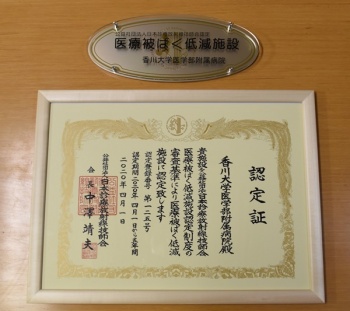 公益社団法人日本診療放射線技師会認定
医療被ばく低減施設
香川大学医学部附属病院
認定証
香川大学医学部附属病院殿
貴施設を公益社団法人日本診療放射線技師会
医療被ばく低減施設認定制度の
審査基準により医療被ばく低減
施設に認定致します
認定登録番号 第一二五号
認定期間二〇二〇年四月一日から五年間
二〇二〇年四月一日
公益社団法人日本診療放射線技師会
会長 中澤靖夫